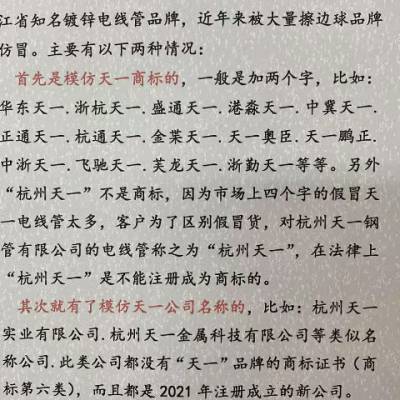 江省知名镀锌电线管品牌，近年来被大量擦边球品牌
仿冒。主要有以下两种情况：
首先是模仿天一商标的，一般是加两个字，比如：
华东天一.浙杭天一.盛通天一.港淼天一.中冀天一.
正通天一.杭通天一.金枼天一.天一奥臣.天一鹏正.
中浙天一.飞驰天一.芙龙天一.浙勤天一等等。另外
“杭州天一”不是商标，因为市场上四个字的假冒天
一电线管太多，客户为了区别假冒货，对杭州天一钢
管有限公司的电线管称之为“杭州天一”，在法律上
“杭州天一”是不能注册成为商标的。
其次就有了模仿天一公司名称的，比如：杭州天一
实业有限公司.杭州天一金属科技有限公司等类似名
称公司.此类公司都没有“天一”品牌的商标证书（商
标第六类），而且都是2021年注册成立的新公司。